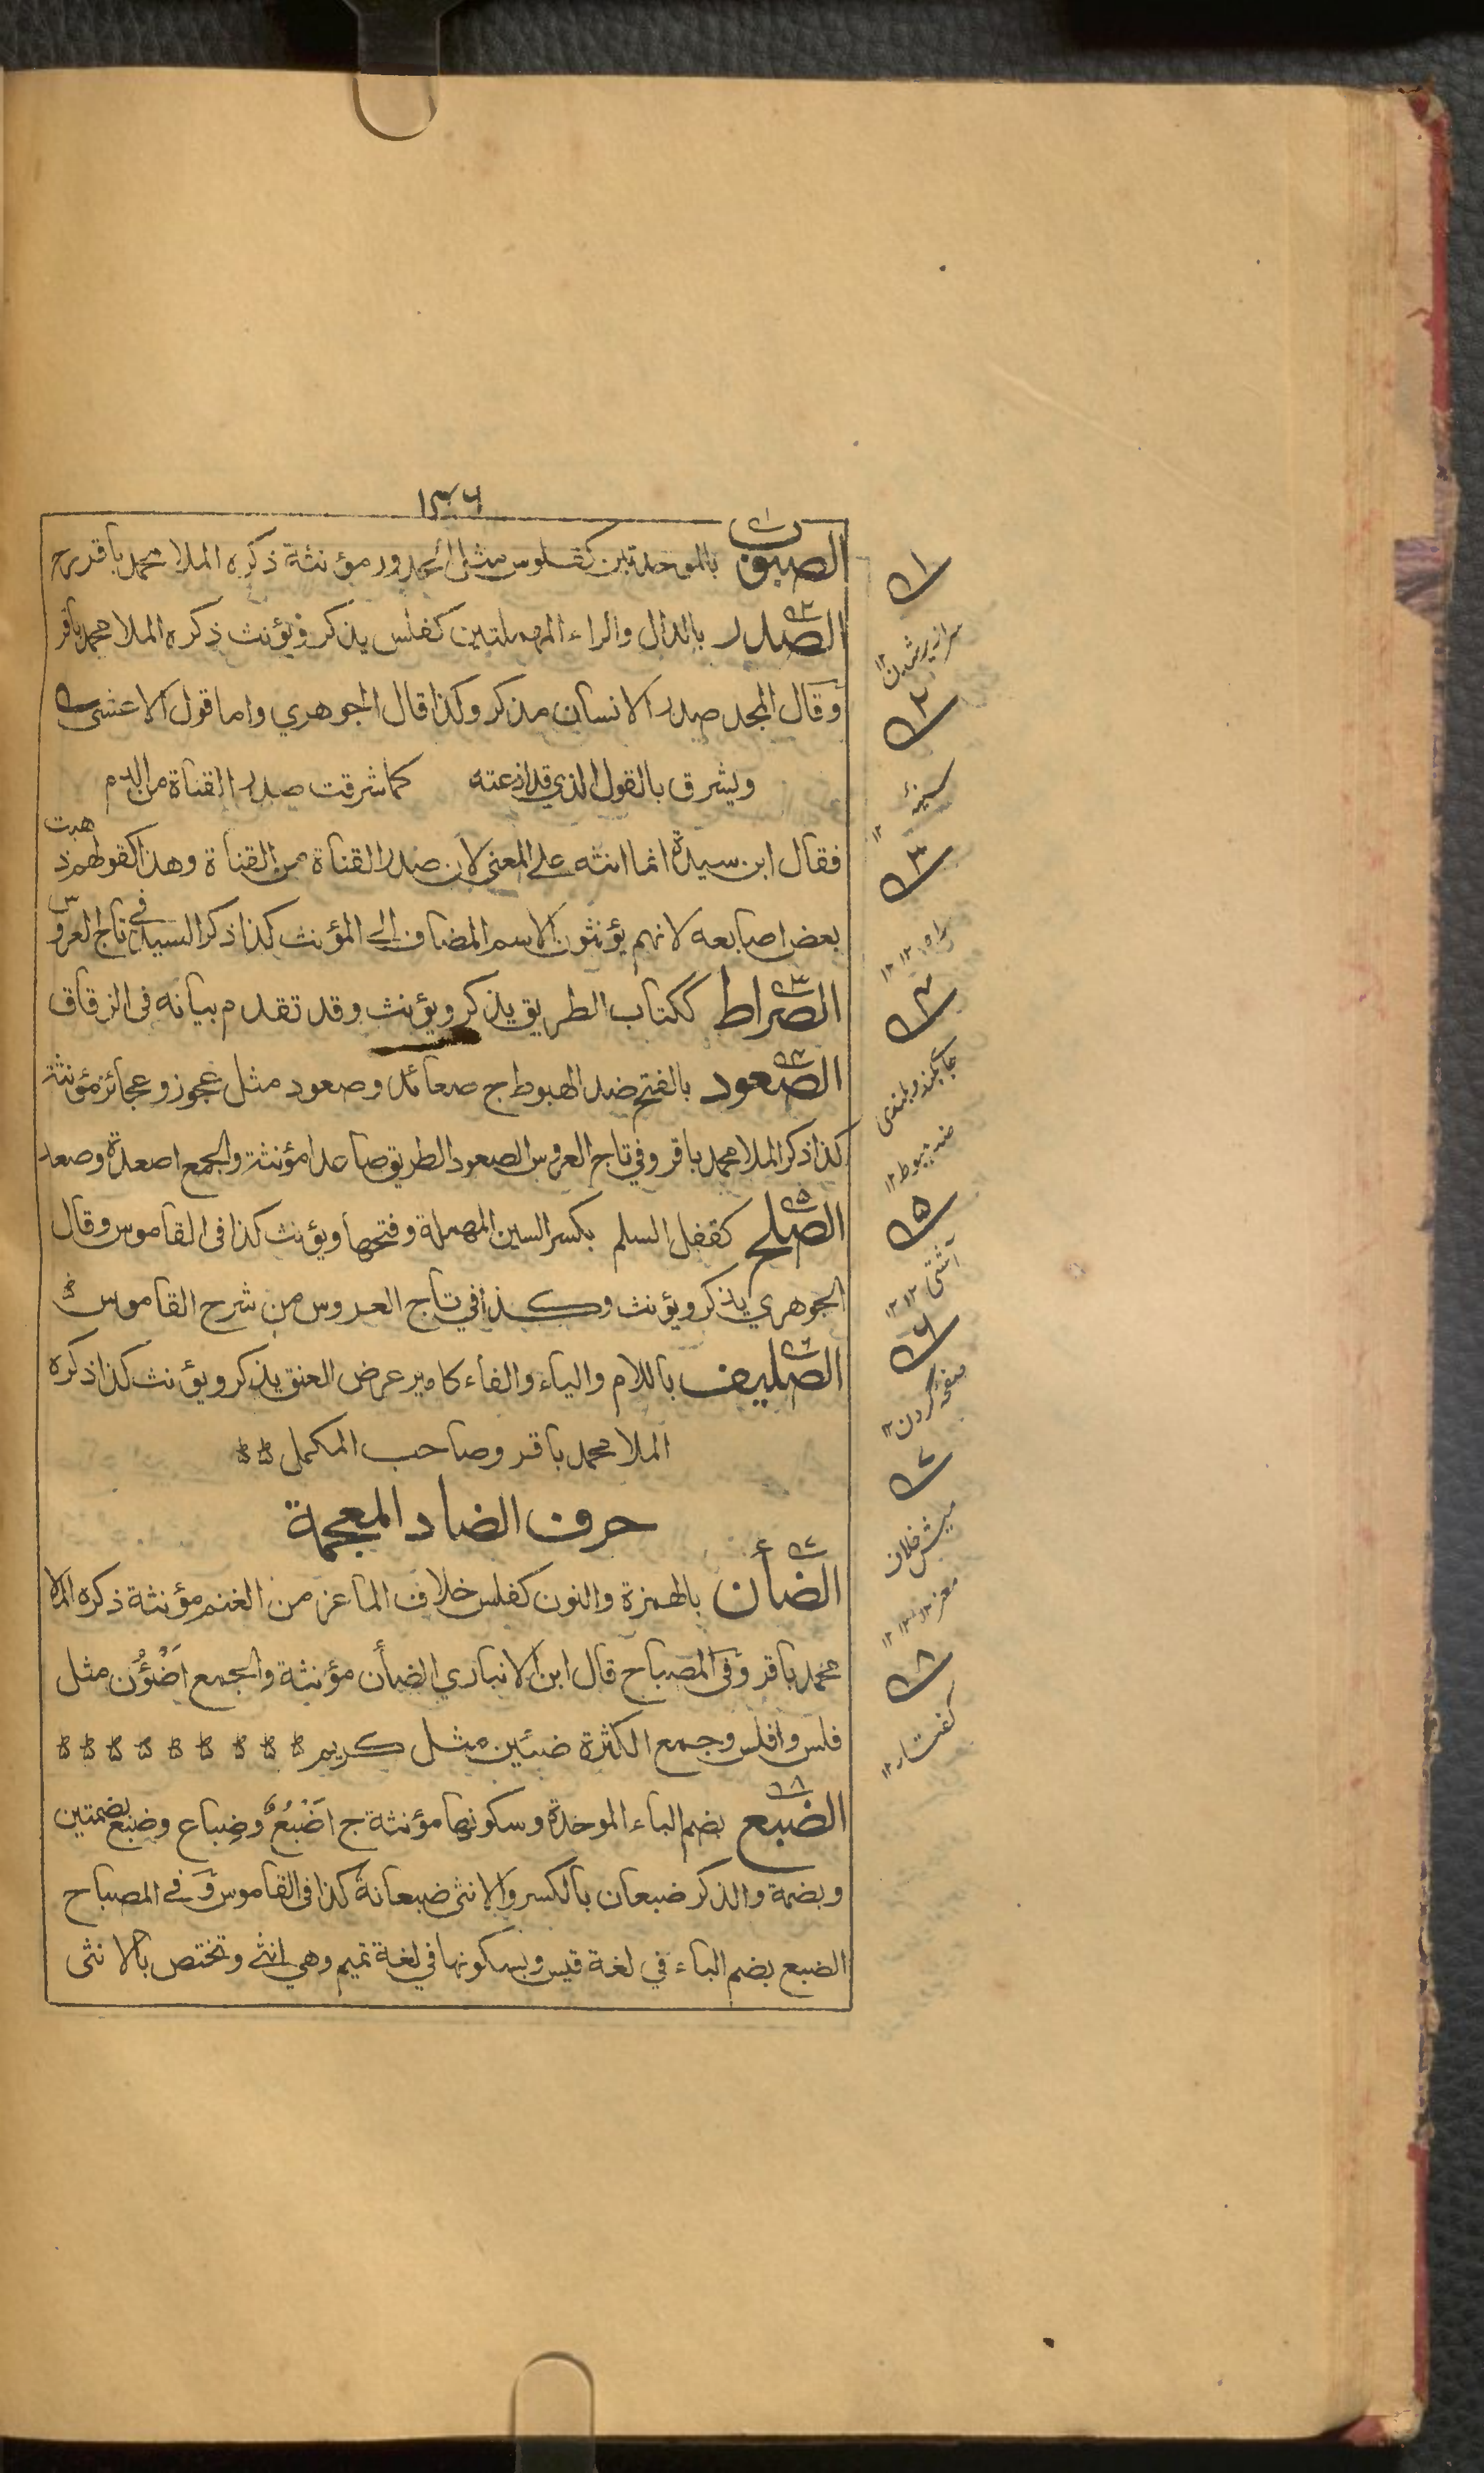 ١٣٦
الصبوب بالموحدتين كفلوس مثل الحدور مؤنثة ذكره الملا محمد باقر رح
الصدر بالدال والراء المهملتين كفلس يذكر ويؤنث ذكره الملا محمد باقر
وقال المجد صدر الانسان مذكر وكذا قال الجوهري واما قول الاعشى
ويشرق بالقول الذي قد اذعته كما شرقت صدر القناة من الدم
فقال ابن سيدة انما انثه على المعنى لان صدر القناة من القناة وهذا كقولهم ذهبت
بعض اصابعه لانهم يؤنثون الاسم المضاف الى المؤنث كذا ذكر السيد في تاج العروس
الصراط ككتاب الطريق يذكر ويؤنث وقد تقدم بيانه فى الزقاق
الصعود بالفتح ضد الهبوط ج صعائد وصعود مثل عجوز وعجائز مؤنثة
كذا ذكر الملا محمد باقر وفي تاج العروس الصعود الطريق صاعدا مؤنثة والجمع اصعدة وصعد
الصلح كقفل السلم بكسر السين المهملة وفتحها ويؤنث كذا فى القاموس وقال
الجوهري يذكر ويؤنث وكذا في تاج العروس من شرح القاموس
الصليف باللام والياء والفاء كامير عرض العنق يذكر ويؤنث كذا ذكره
الملا محمد باقر وصاحب المكمل
حرف الضاد المعجمة
الضأن بالهمزة والنون كفلس خلاف الماعز من الغنم مؤنثة ذكره الملا
محمد باقر وفى المصباح قال ابن الانباري الضأن مؤنثة والجمع اَضْؤُن مثل
فلس وافلس وجمع الكثرة ضئين مثل كريم
الضبع بضم الباء الموحدة وسكونها مؤنثة ج اَضْبُعٌ وضِباع وضبع بضمتين
وبضمة والذكر ضبعان بالكسر والانثى ضبعانة كذا فى القاموس وفى المصباح
الضبع بضم الباء في لغة قيس وبسكونها في لغة تميم وهي انثى وتختص بالانثى
١
سرازير شدن ١٢
٢
سينه ١٢
٣
راه ١٢
٤
جاى بلند وبلندى
ضد هبوط ١٢
٥
آشتى ١٢
٦
صفحه گردن ١٢
٧
ميش خلاف
معز ١٢
٨
كفتار ١٢